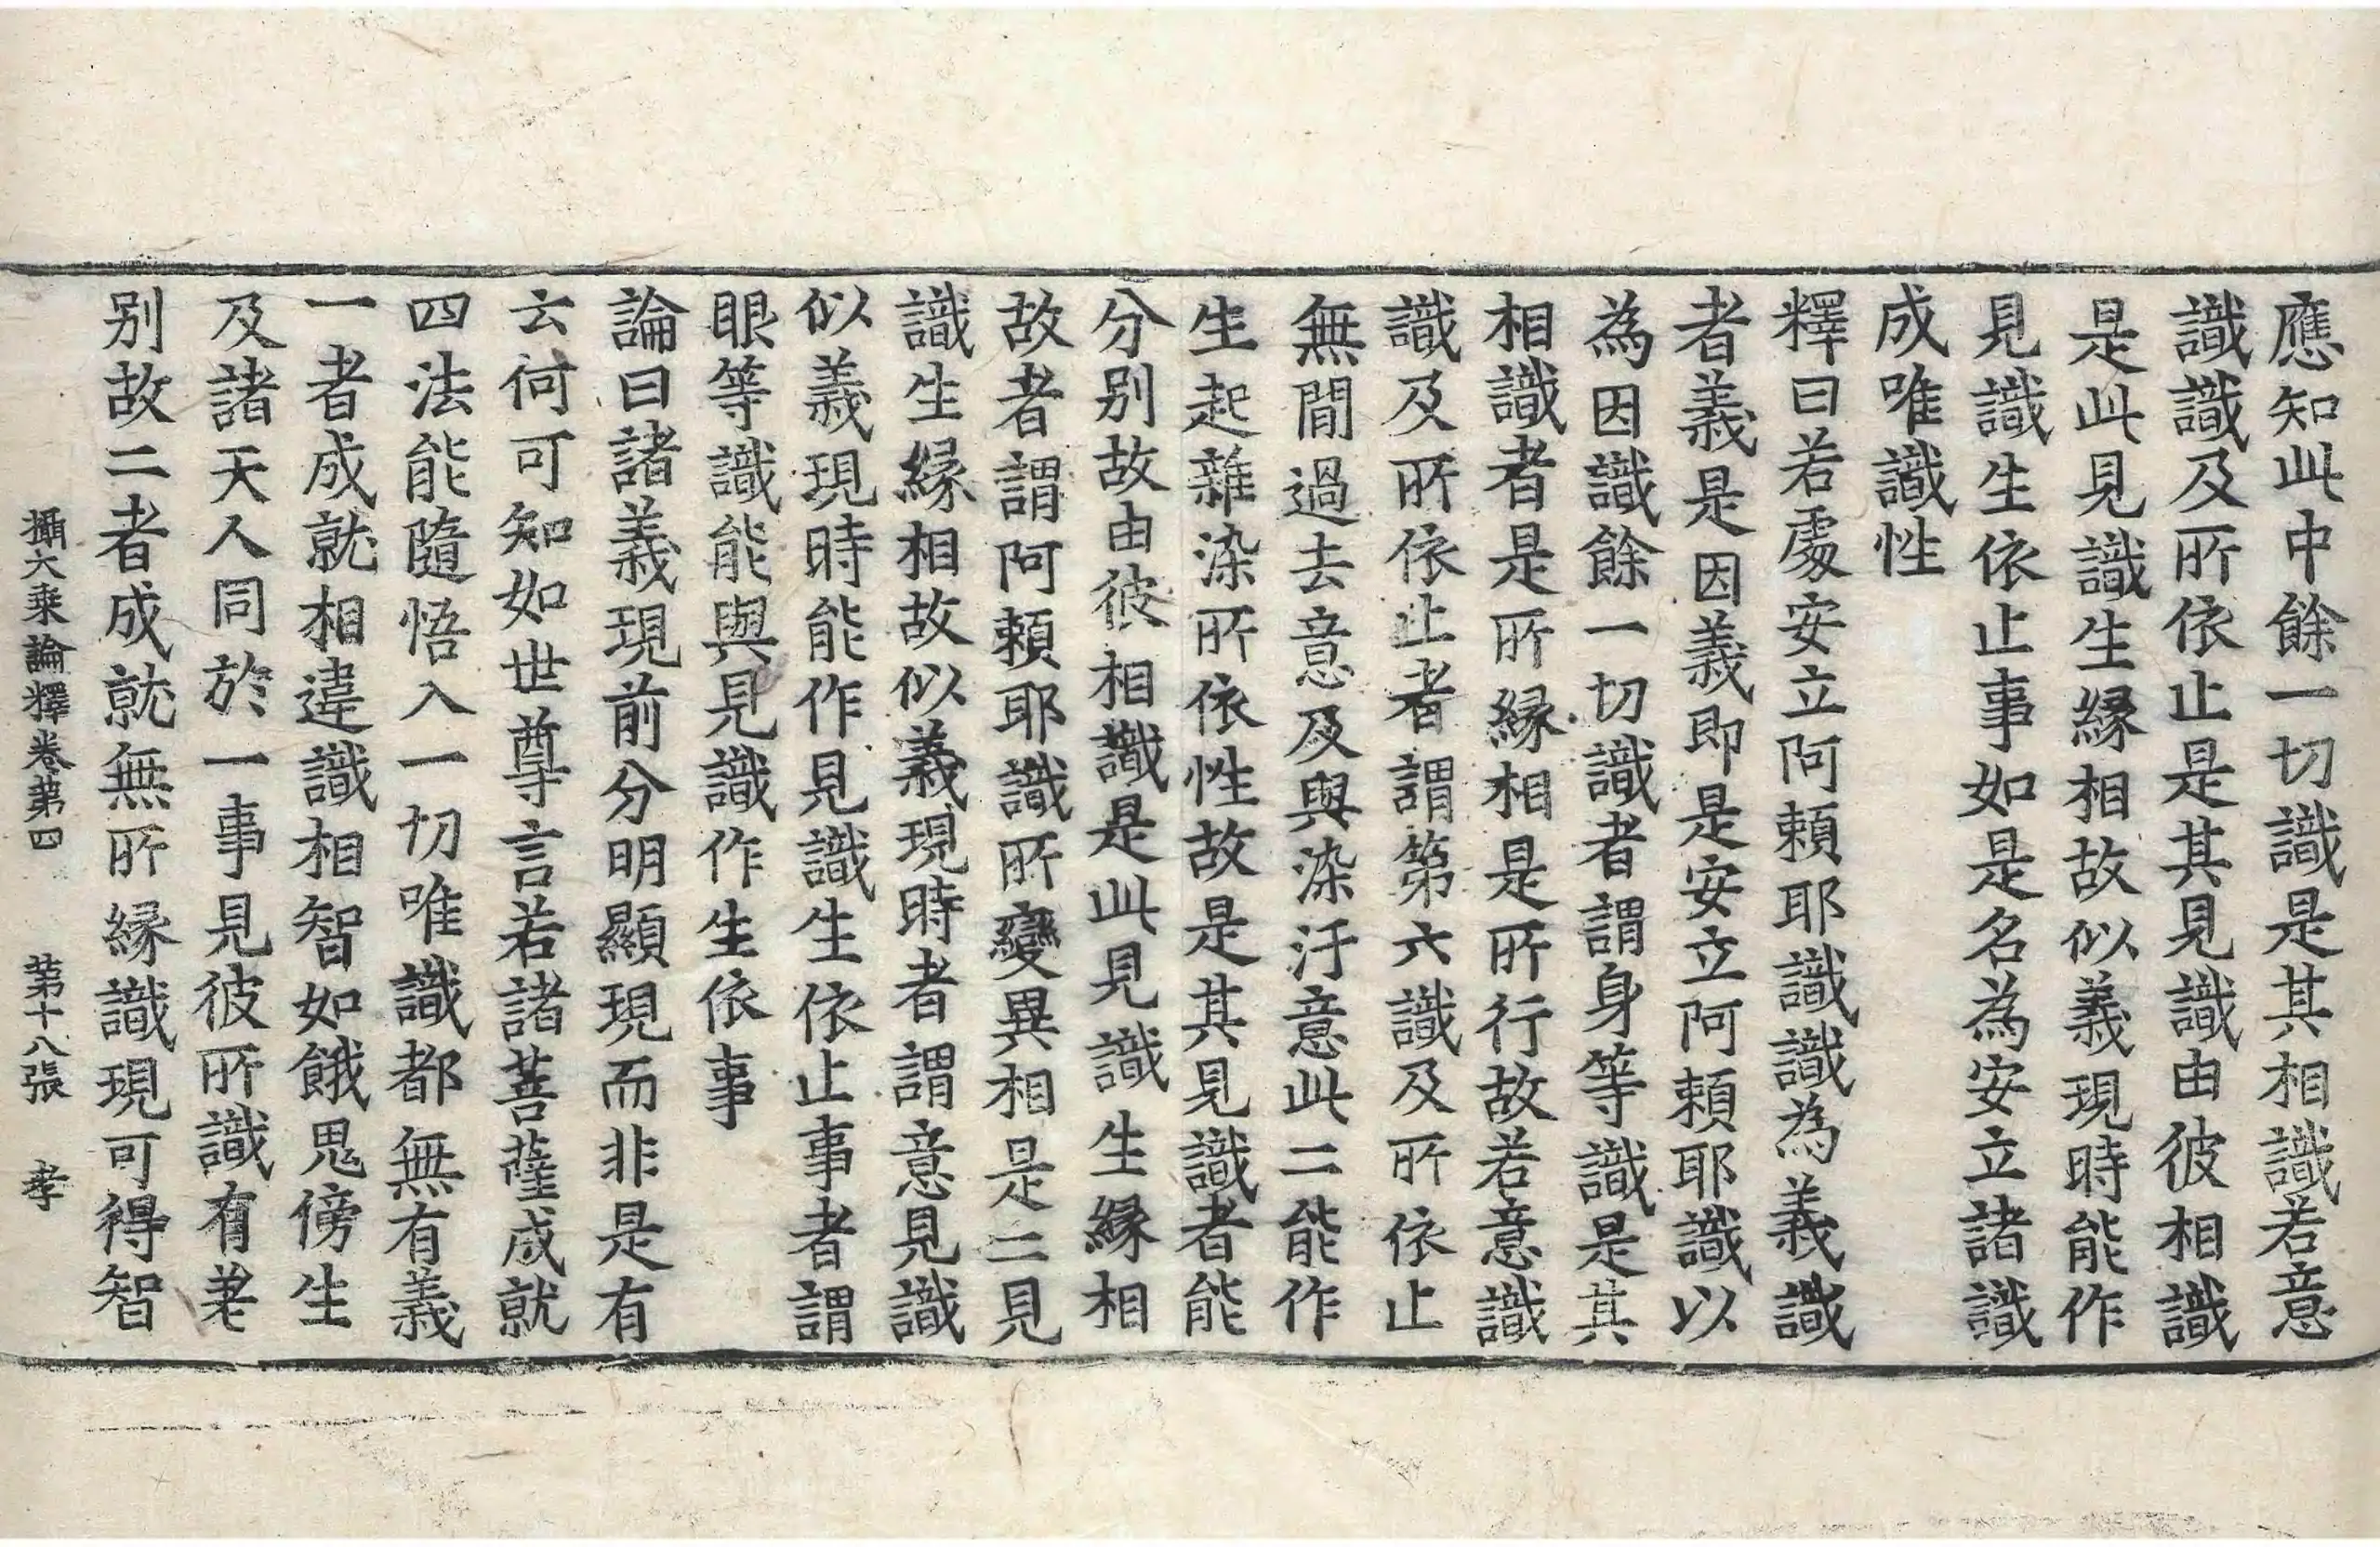 應知此中餘一切識是其相識若意
識識及所依止是其見識由彼相識
是此見識生緣相故似義現時能作
見識生依止事如是名為安立諸識
成唯識性
釋曰若處安立阿頼耶識識為義識
者義是因義即是安立阿頼耶識以
為因識餘一切識者謂身等識是其
相識者是所緣相是所行故若意識
識及所依止者謂第六識及所依止
無間過去意及與染汙意此二能作
生起雜染所依性故是其見識者能
分别故由彼相識是此見識生緣相
故者謂阿頼耶識所變異相是二見
識生緣相故似義現時者謂意見識
似義現時能作見識生依止事者謂
眼等識能與見識作生依事
論曰諸義現前分明顯現而非是有
云何可知如世尊言若諸菩薩成就
四法能隨悟入一切唯識都無有義
一者成就相違識相智如餓鬼傍生
及諸天人同於一事見彼所識有差
别故二者成就無所緣識現可得智
攝大乘論釋卷第四 第十八張 孝